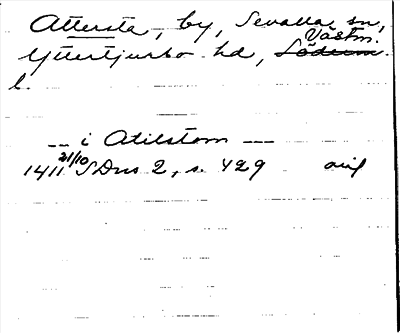 Attersta, by, Sevalla sn,
Yttertjurbo hd, Söderm. Västm.
l.
— i Atilstom —
1411 21/10 SDns 2, s. 429 avil